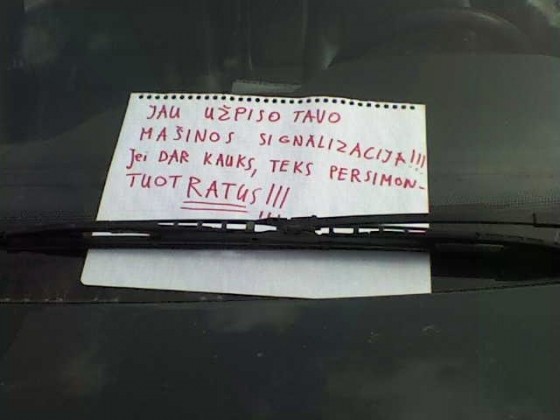 JAU UŽPISO TAVO
MAŠINOS SIGNALIZACIJA!!!
Jei DAR KAUKS, TEKS PERSIMON-
TUOT RATUS!!!